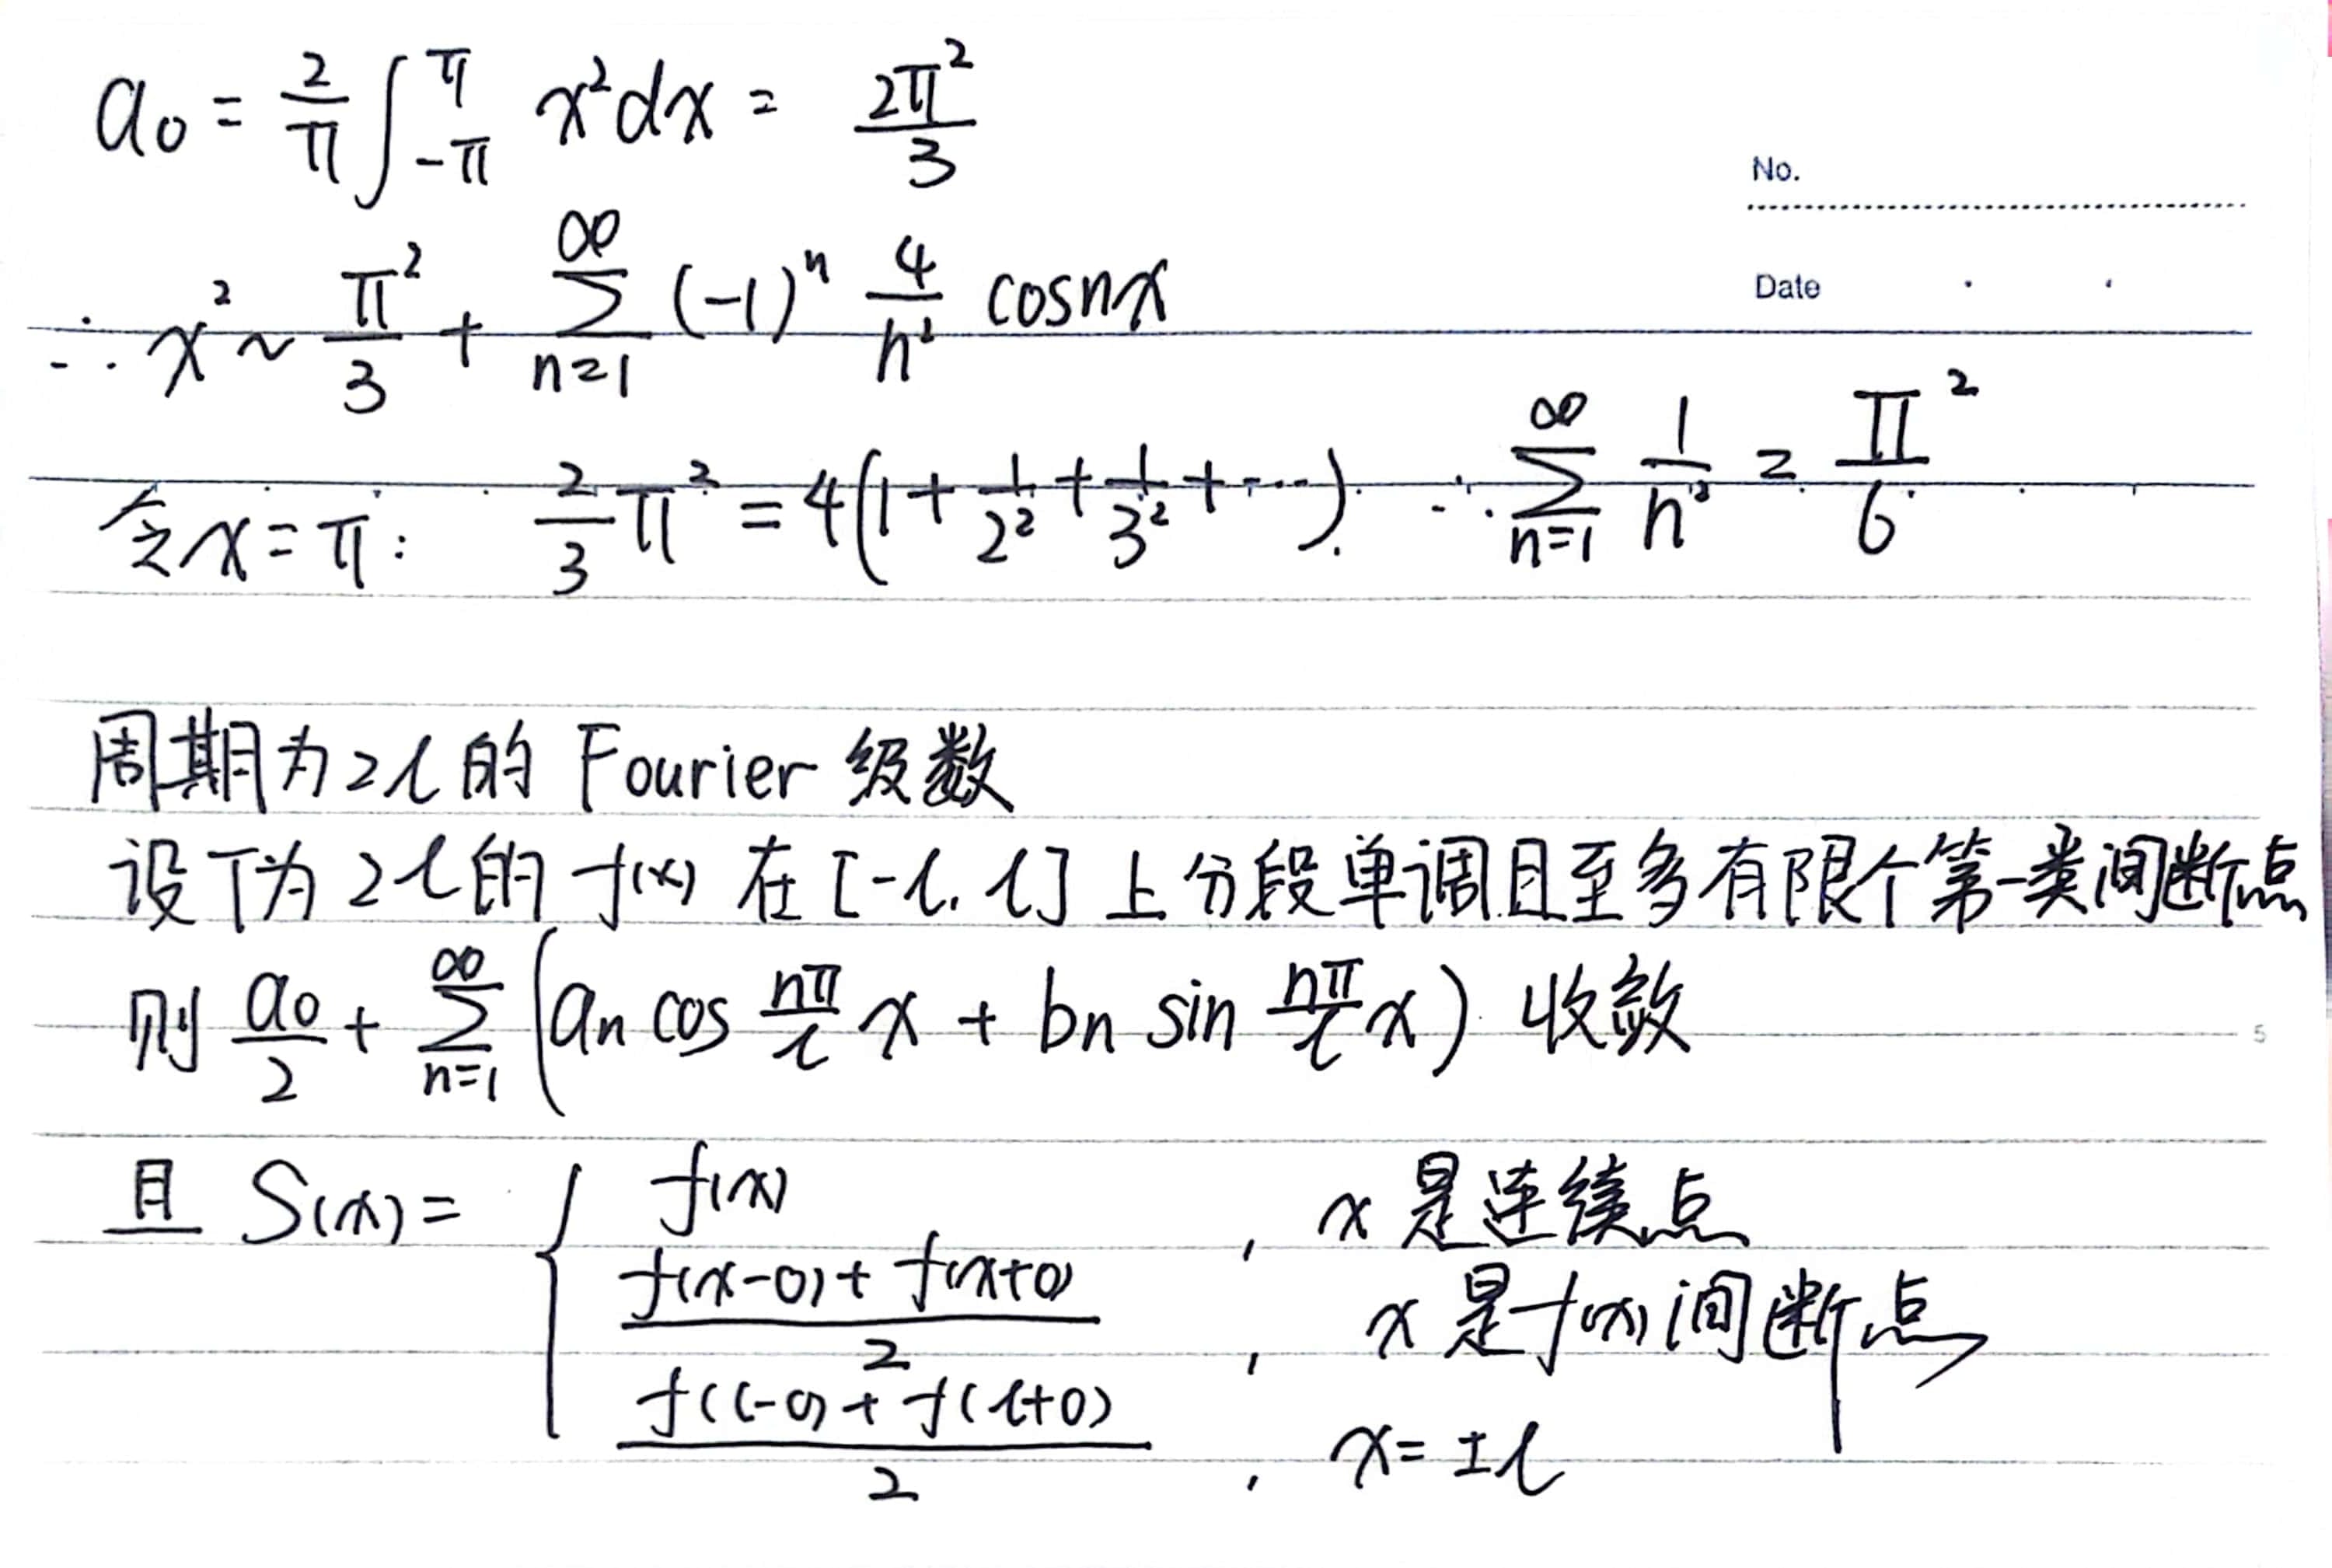 a₀ = 2/π ∫_{-π}^{π} x² dx = 2π²/3
No.
Date
∴ x² ~ π²/3 + ∑_{n=1}^{∞} (-1)ⁿ 4/n² cos nx
令 x = π: 2/3 π² = 4(1 + 1/2² + 1/3² + ⋯). ∴ ∑_{n=1}^{∞} 1/n² = π²/6
周期为2l的 Fourier 级数
设T为2l的 f(x) 在 [-l, l] 上分段单调且至多有限个第一类间断点
则 a₀/2 + ∑_{n=1}^{∞} (aₙ cos nπ/l x + bₙ sin nπ/l x) 收敛
5
且 S(x) = { f(x) , x 是连续点
(f(x-0) + f(x+0))/2 , x 是 f(x) 间断点
(f(l-0) + f(l+0))/2 , x = ±l